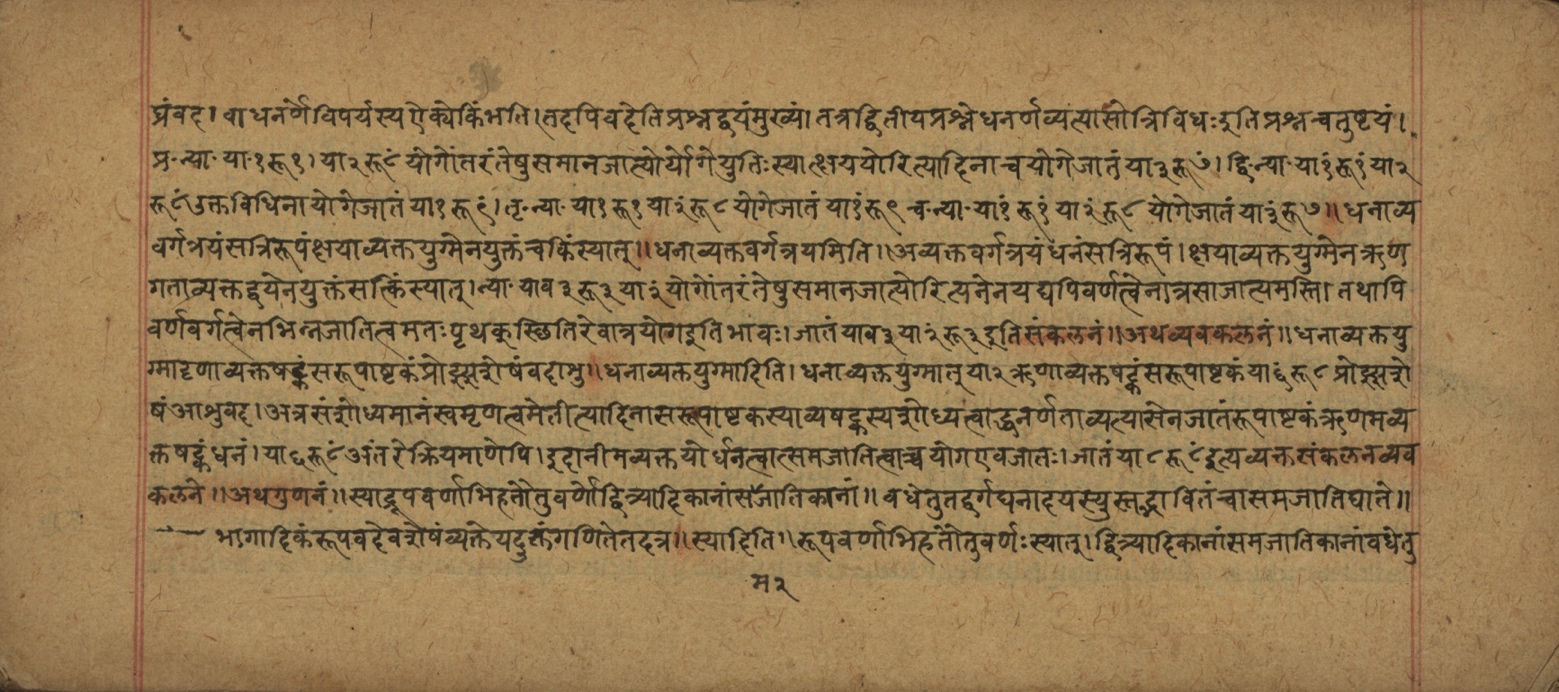 प्रंवद। वा धनर्णविपर्यस्य ऐक्येकिंभति।तदपिवदेतिप्रश्नद्वयंमुख्यं। तत्रद्वितीयप्रश्नेधनर्णव्यत्यासोत्रिविधःइतिप्रश्नचतुष्टयं।
प्र॰न्या॰ या॰१रू१। या२रू८ं योगोंतरंतेषुसमानजात्योर्योगेयुतिःस्यात्क्षययोरित्यादिनाचयोगेजातंया३रू७ं। द्वि॰न्या॰ या१ंरू१ंया२
रू८ंउक्तविधिनायोगेजातंया१रू९ं। तृ॰न्या॰ या१रू१या२ंरू८योगेजातं या१ंरू९ च॰न्या॰या१ं रू१ं या२ंरू८ योगेजातंया३ंरू७॥ धनाव्य
वर्गत्रयंसत्रिरूपंक्षयाव्यक्तयुग्मेनयुक्तंचकिंस्यात्॥ धनाव्यक्तवर्गत्रयमिति॥ अव्यक्तवर्गत्रयंधनंसत्रिरूपं। क्षयाव्यक्तयुग्मेनऋण
गताव्यक्तद्वयेनयुक्तंसत्किंस्यात्। न्या॰याव३रू३या२ंयोगोंतरंतेषुसमानजात्योरित्यनेनयद्यपिवर्णत्वेनात्रसाजात्यमस्ति। तथापि
वर्णवर्गत्वेनभिन्नजातित्वमतःपृथक्स्थितिरेवात्रयोगइतिभावः। जातंयाव३या२ंरू३इतिसंकलनं॥ अथव्यवकलनं॥ धनाव्यक्तयु
ग्मादृणाव्यक्तषट्कंसरूपाष्टकंप्रोझ्यशेषंवदाशु॥ धनाव्यक्तयुग्मादिति। धनाव्यक्तयुग्मात्या२ऋणाव्यक्तषट्कंसरूपाष्टकंया६ंरू८प्रोझ्यशे
षंआशुवद। अत्रसंशोध्यमानंस्वमृणत्वमेतीत्यादिनासरूपाष्टकस्याव्यषट्कस्यशोध्यत्वाद्धनर्णताव्यत्यासेनजातंरूपाष्टकंऋणमव्य
क्तषट्कंधनं। या६रू८ंअंतरेक्रियमाणेपि। इदानीमव्यक्तयोर्धनत्वात्समजातित्वाच्चयोगएवजातः। जातंया८रू८ंइत्यव्यक्तसंकलनव्यव
कलने॥ अथगुणनं॥ स्याद्रूपवर्णाभिहतौतुवर्णोद्वित्र्यादिकानांसजातिकानां॥ वधेतुतद्वर्गघनादयस्युस्तद्भावितंचासमजातिघाते॥
भागादिकंरूपवदेवशेषंव्यक्तेयदुक्तंगणितेतदत्र॥ स्यादिति॥ रूपवर्णाभिहतौतुवर्णःस्यात्। द्वित्र्यादिकानांसमजातिकानांवधेतु
म२